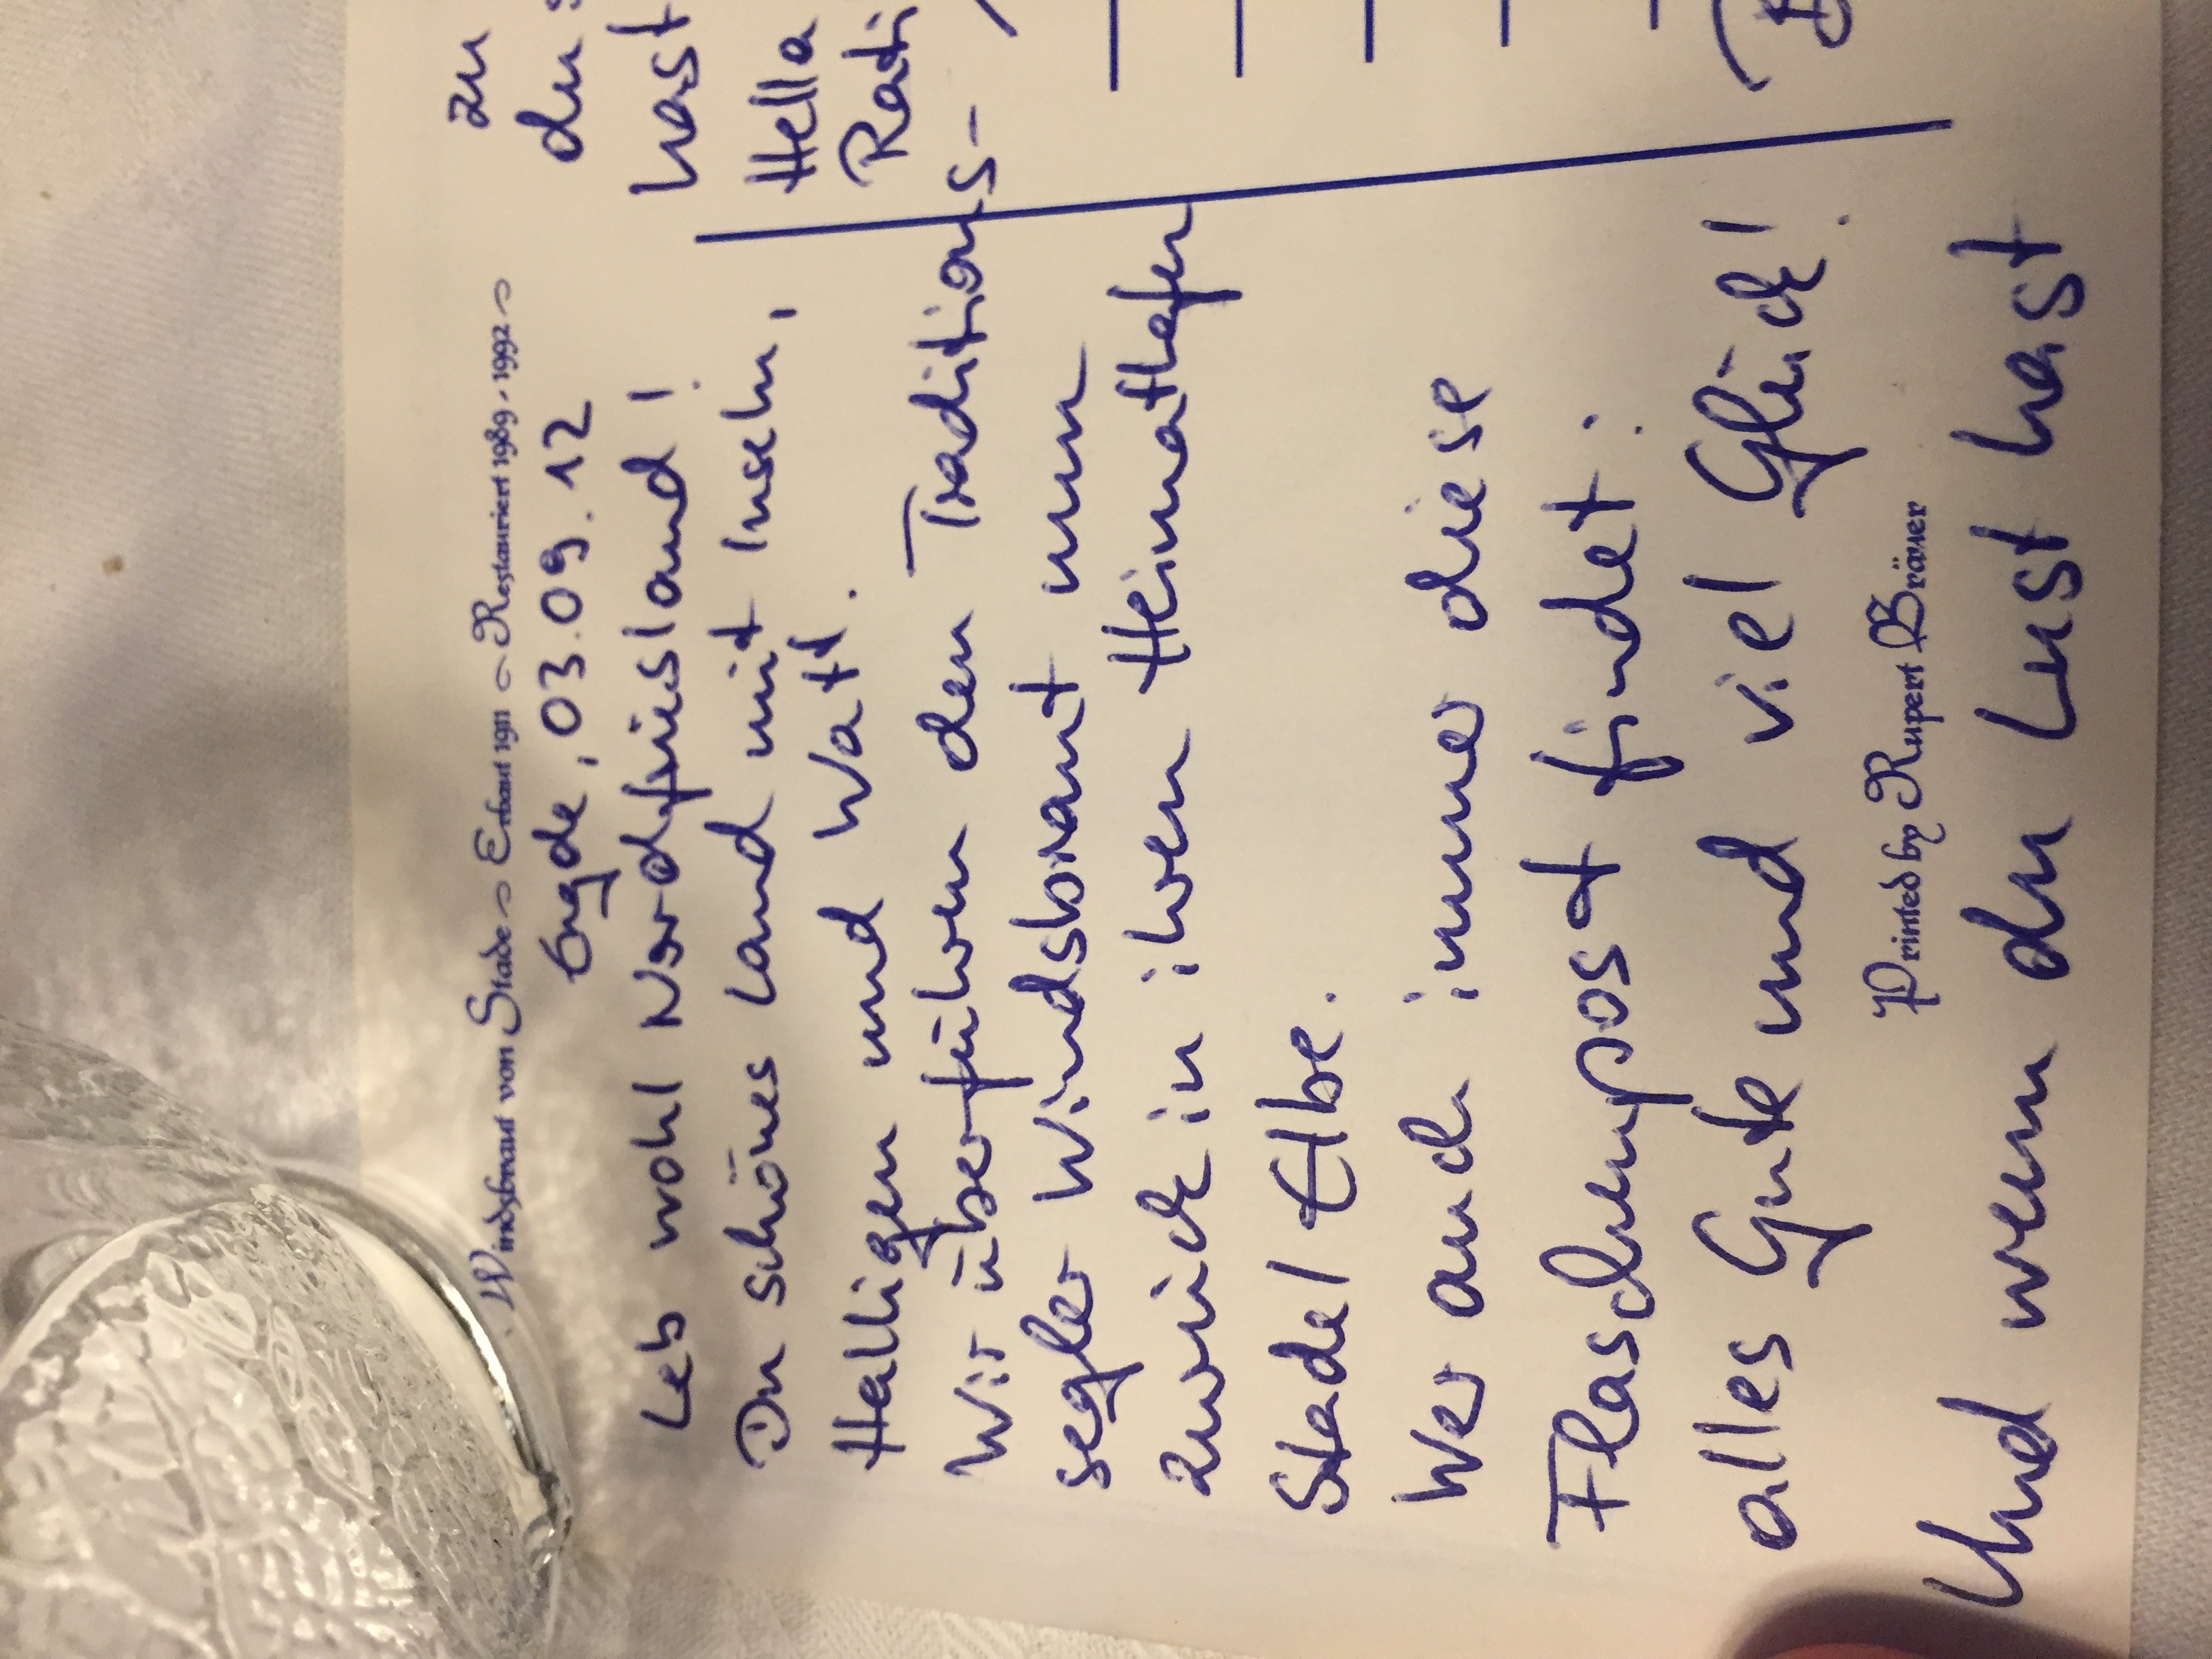 Windsbraut von Stade ~ Erbaut 1911 ~ Restauriert 1989 - 1992 ~
03.09.12
Leb wohl Nordfriesland!
Du schönes Land mit Inseln,
Halligen und Watt.
Wir überführen den Traditions-
segler Windsbraut nun
zurück in ihren Heimathafen
Stade / Elbe.
Wer auch immer diese
Flaschenpost findet:
alles Gute und viel Glück!
Printed by Rupert Bräuer
Und wenn du Lust hast
zu
du
hast
Hella